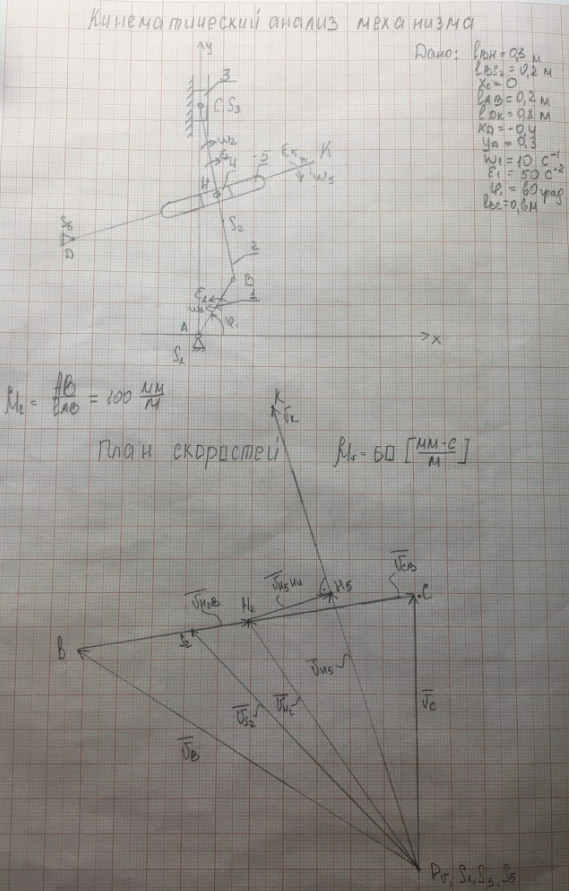 Кинематический анализ механизма
y
Дано: l_BH = 0,3 м
l_BS2 = 0,2 м
x_C = 0
l_AB = 0,2 м
l_DK = 0,8 м
x_D = -0,4
y_D = 0,3
ω1 = 10 с⁻¹
ε1 = 50 с⁻²
φ1 = 60 град
l_BC = 0,6 м
3
C, S3
ω2
4
5
ε5
K
ω5
H
S5
D
S2
2
B
ε1
1
φ1
A
x
S1
μ_l = AB / l_AB = 100 мм/м
K
v̅_K
План скоростей
μ_v = 60 [мм·с/м]
v̅_CB
v̅_H5H4
H5
C
v̅_H2B
H2
S2
B
v̅_H5
v̅_S2
v̅_H2
v̅_C
v̅_B
P_v, S1, S3, S5